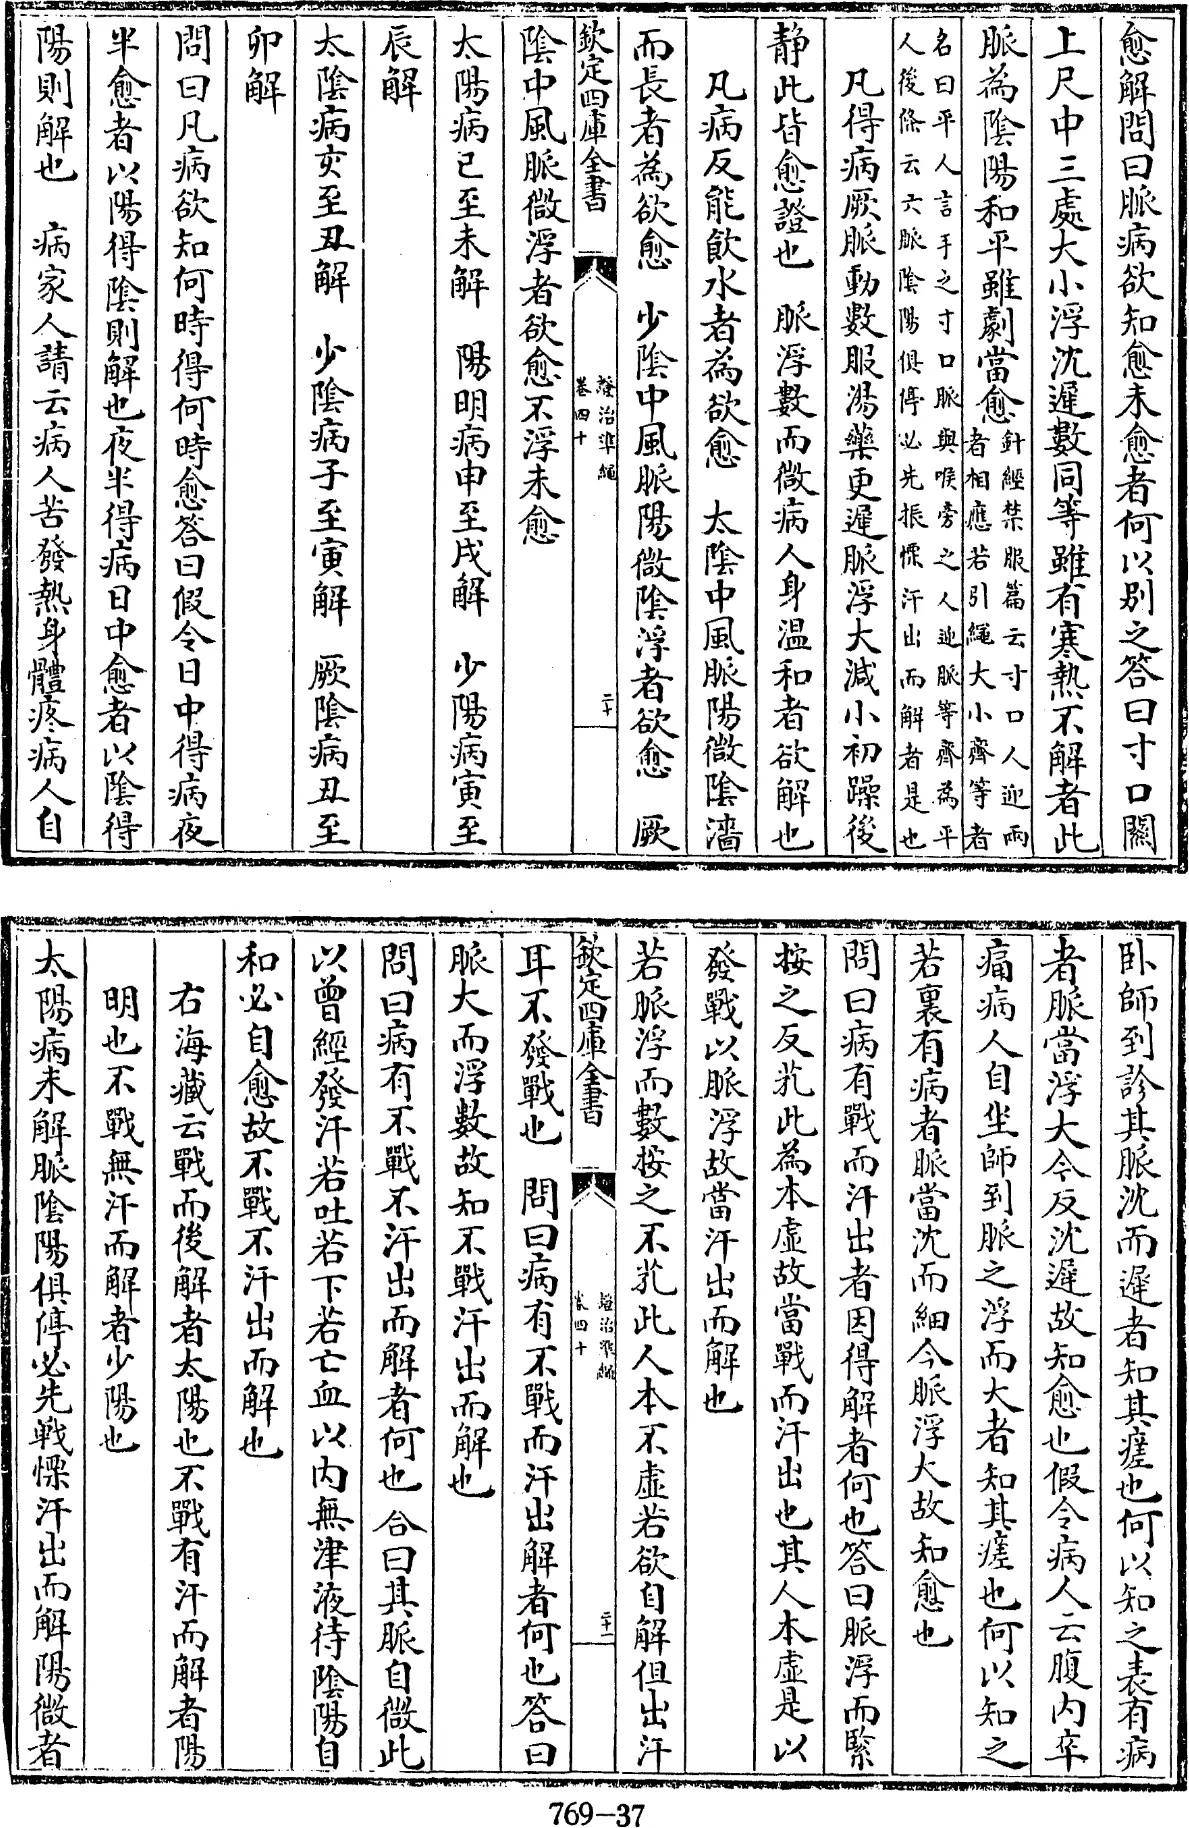 愈解問曰脈病欲知愈未愈者何以别之答曰寸口關
上尺中三處大小浮沈遲數同等雖有寒熱不解者此
脈為陰陽和平雖劇當愈
針經禁服篇云寸口人迎兩
者相應若引繩大小齊等者
名曰平人言手之寸口脈與喉旁之人迎脈等齊為平
人後條云六脈陰陽俱停必先振慄汗出而解者是也
凡得病厥脈動數服湯藥更遲脈浮大減小初躁後
静此皆愈證也　脈浮數而微病人身温和者欲解也
凡病反能飲水者為欲愈　太陰中風脈陽微陰濇
而長者為欲愈　少陰中風脈陽微陰浮者欲愈　厥
欽定四庫全書
證治準繩
卷四十
二十
陰中風脈微浮者欲愈不浮未愈
太陽病已至未解　陽明病申至戌解　少陽病寅至
辰解
太陰病亥至丑解　少陰病子至寅解　厥陰病丑至
卯解
問曰凡病欲知何時得何時愈答曰假令日中得病夜
半愈者以陽得陰則解也夜半得病日中愈者以陰得
陽則解也　病家人請云病人苦發熱身體疼病人自
卧師到診其脈沈而遲者知其瘥也何以知之表有病
者脈當浮大今反沈遲故知愈也假令病人云腹内卒
痛病人自坐師到脈之浮而大者知其瘥也何以知之
若裏有病者脈當沈而細今脈浮大故知愈也
問曰病有戰而汗出者因得解者何也答曰脈浮而緊
按之反芤此為本虛故當戰而汗出也其人本虛是以
發戰以脈浮故當汗出而解也
若脈浮而數按之不芤此人本不虛若欲自解但出汗
欽定四庫全書
證治準繩
卷四十
二十一
耳不發戰也　問曰病有不戰而汗出解者何也答曰
脈大而浮數故知不戰汗出而解也
問曰病有不戰不汗出而解者何也　合曰其脈自微此
以曾經發汗若吐若下若亡血以内無津液待陰陽自
和必自愈故不戰不汗出而解也
右海藏云戰而後解者太陽也不戰有汗而解者陽
明也不戰無汗而解者少陽也
太陽病未解脈陰陽俱停必先戰慄汗出而解陽微者
769—37